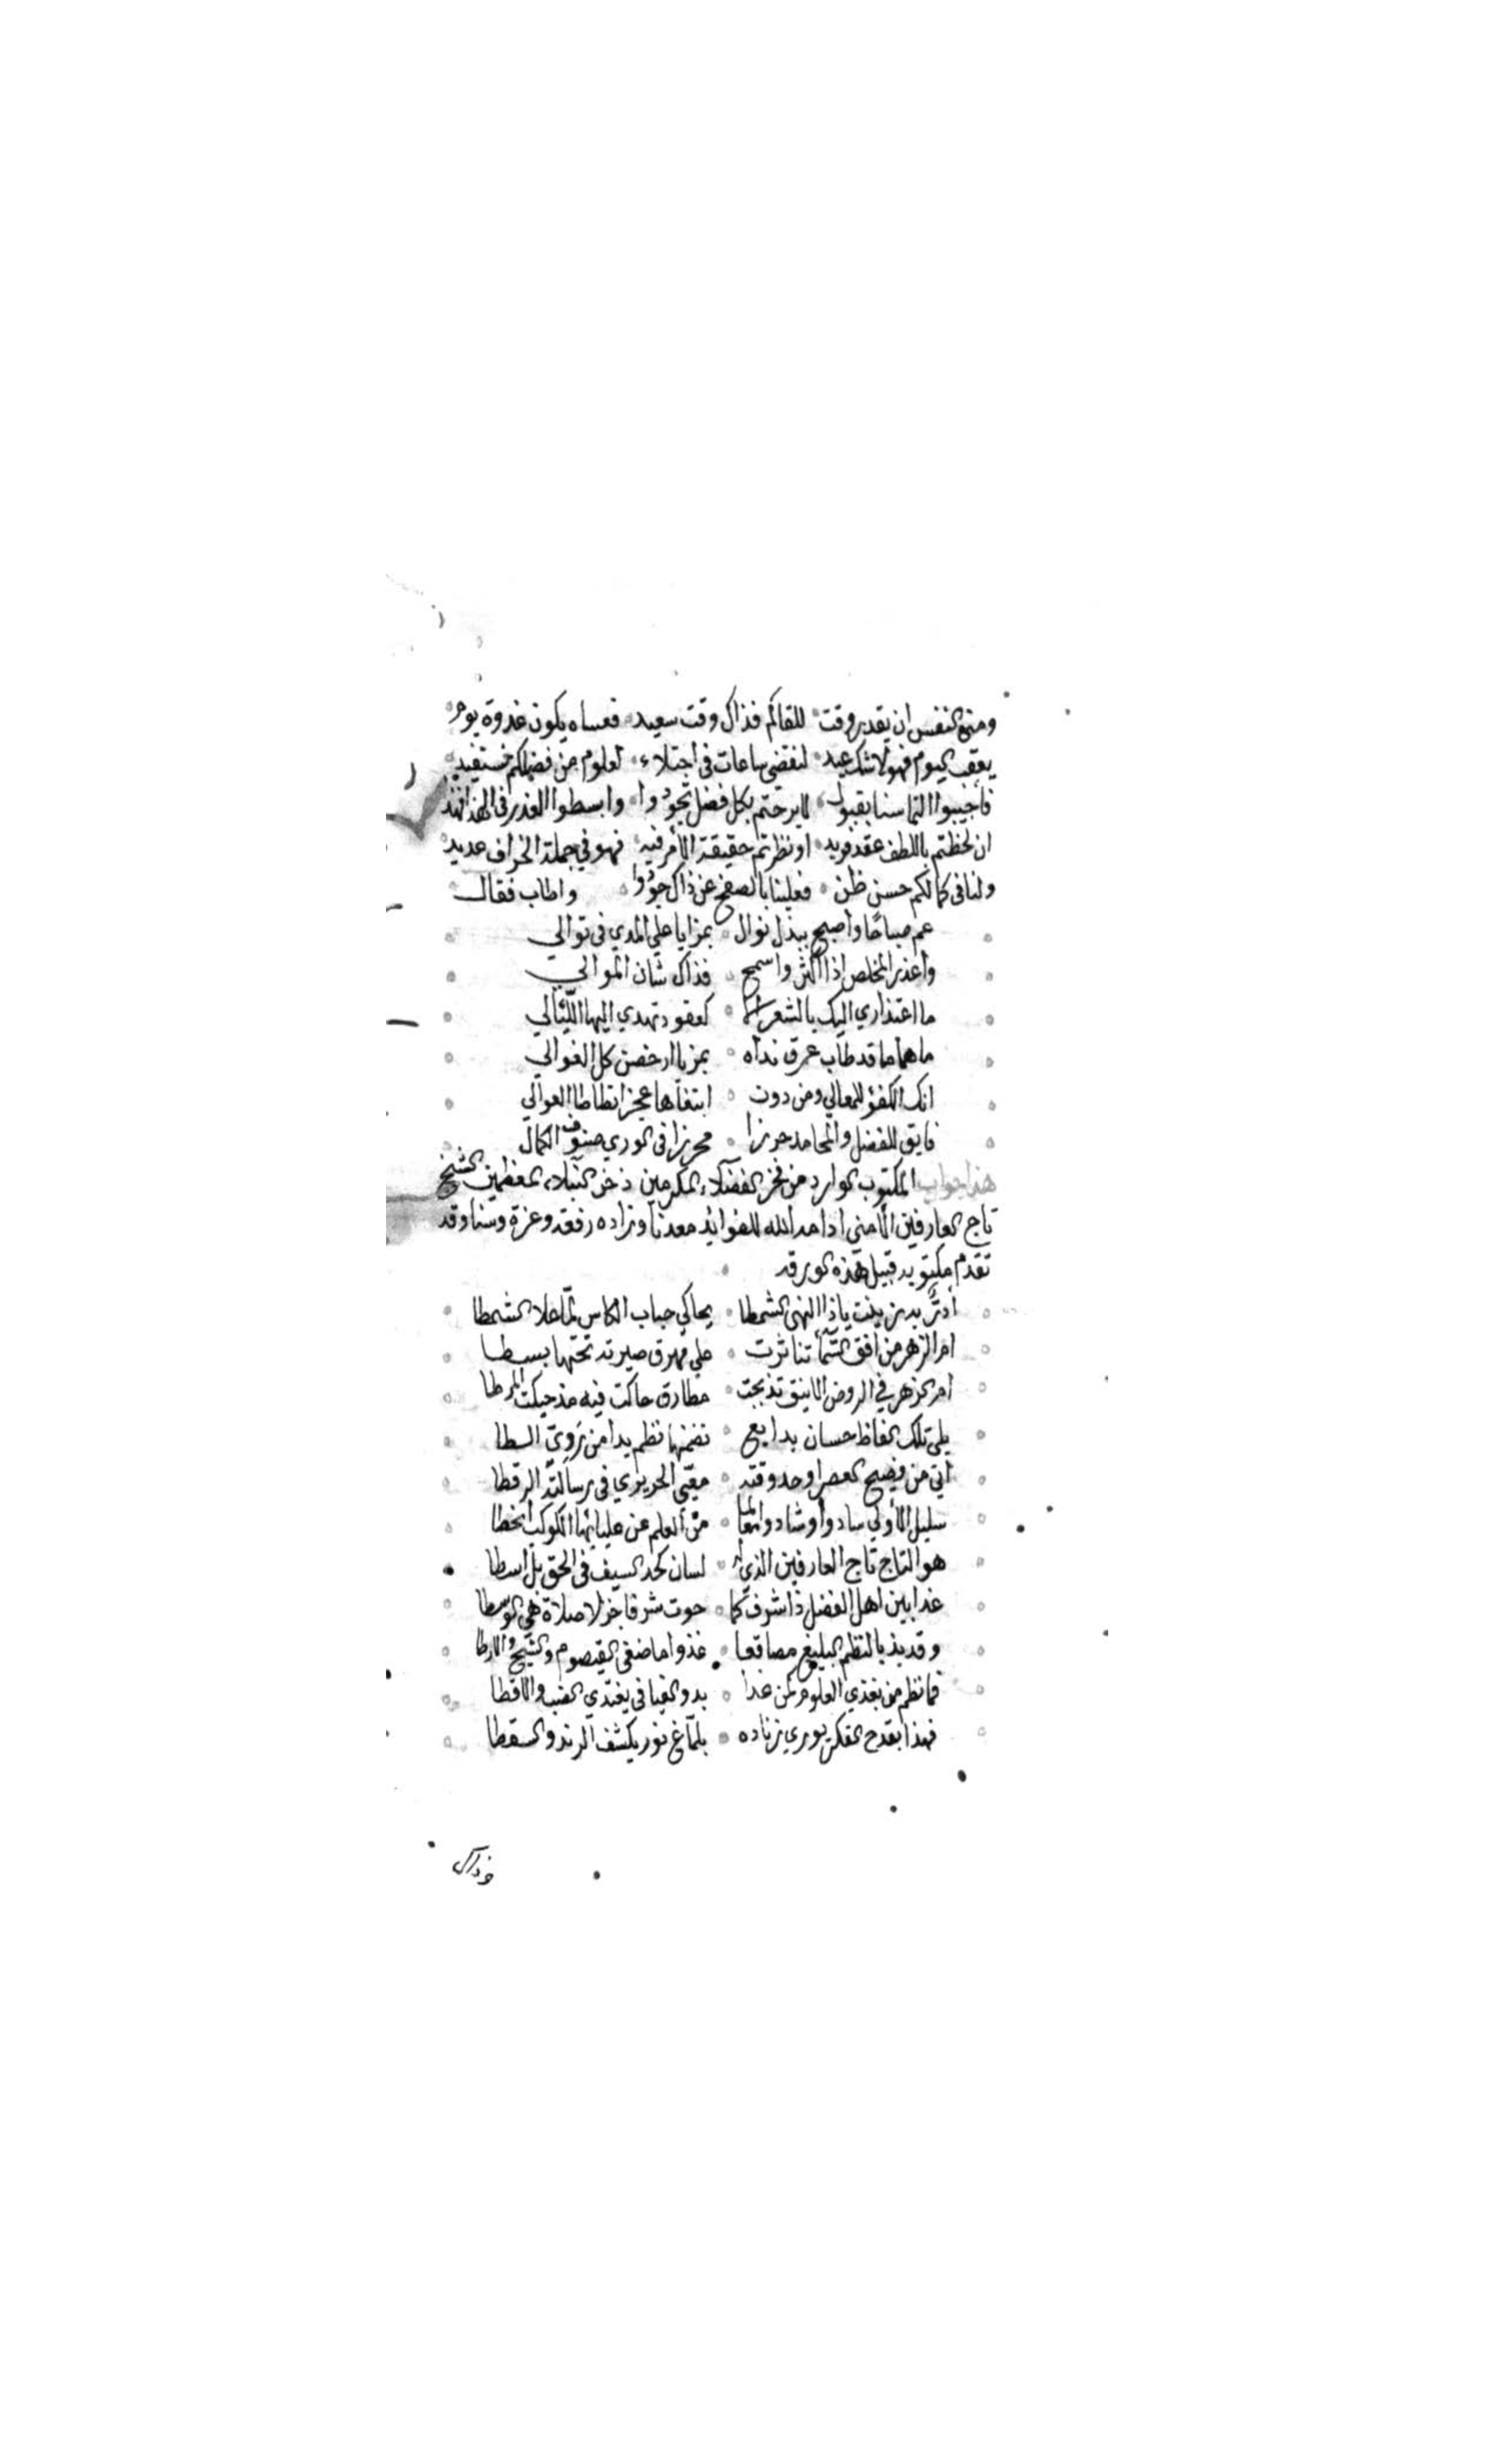 ومنى النفس ان يقدر وقت للقاكم فذاك وقت سعيد فعساه يكون غدوة يوم
يعقب اليوم فهو لاشك عيد لنقضي ساعات في اجتلاء لعلوم من فضلكم نستفيد
فأجيبوا التماسنا بقبول لا برحتم بكل فضل تجودوا وابسطوا العذر في
ان لحظتم باللطف عقد فريد او نظرتم حقيقة الأمر فيه فهو في جملة الخراف عديد
ولنا في كمالكم حسن ظن فعلينا بالصفح عن ذاك جودوا واطاب فقال
عم صباحا واصبح ببذل نوال بمزايا علي المدي في توالي
واعذر المخلص اذا اكثر واسمح فذاك شان الموالي
ما اعتذاري اليك بالشعر كعقود تهدي اليها اللئالي
ماهما ما قد طاب عرق نداه بمزيا ارخصن كل الغوالي
انك الكفؤ للمعالي ومن دون ابتغاها عجزا تطاطا العوالي
فايق للفضل والمحامد حرزا محرزا في الوري صنوف الكمال
هذا جواب المكتوب الوارد من فخر الفضلاء المكرمين ذخر النبلاء المعظمين الشيخ
تاج العارفين الامني ادامه الله للفوائد معدنا وزاده رفعة وعزة وسنا وقد
تقدم مكتوبه قبيل هذه الورقة
أدر بدر زينت ياذا النهى الشمطا يحاكي حباب الكاس لما علا الشمطا
ام الزهر من افق السما تناثرت علي مهرق صيرته تحتها بسطا
أم الزهر في الروض الانيق تدبجت مطارق حاكت فيه مذ حيكت المرطا
بلى تلك الفاظ حسان بدايع تضمنها نظم بدا من روي السطا
أتي من فصيح العصر اوحد وقته معيي الحريري في رسالته الرقطا
سليل الأولي سادوا وشادوا من العلم عن عليائها الكوكب انحطا
هو التاج تاج العارفين الذي له لسان كحد السيف في الحق بل اسطا
غدا بين اهل الفضل ذا شرف كما حوت شرفا خير لا صلاة هي الوسطا
وقد بذ بالنظم البليغ مصاقعا غذوا ماضغي القيصوم والشيح والارطا
فما نظم من بغذي العلوم كمن غدا بدو الفيافي يغتدي الضب والاقطا
فهذا بقدح الفكر يوري زناده بلماع نور يكشف الرند والسقطا
وذاك